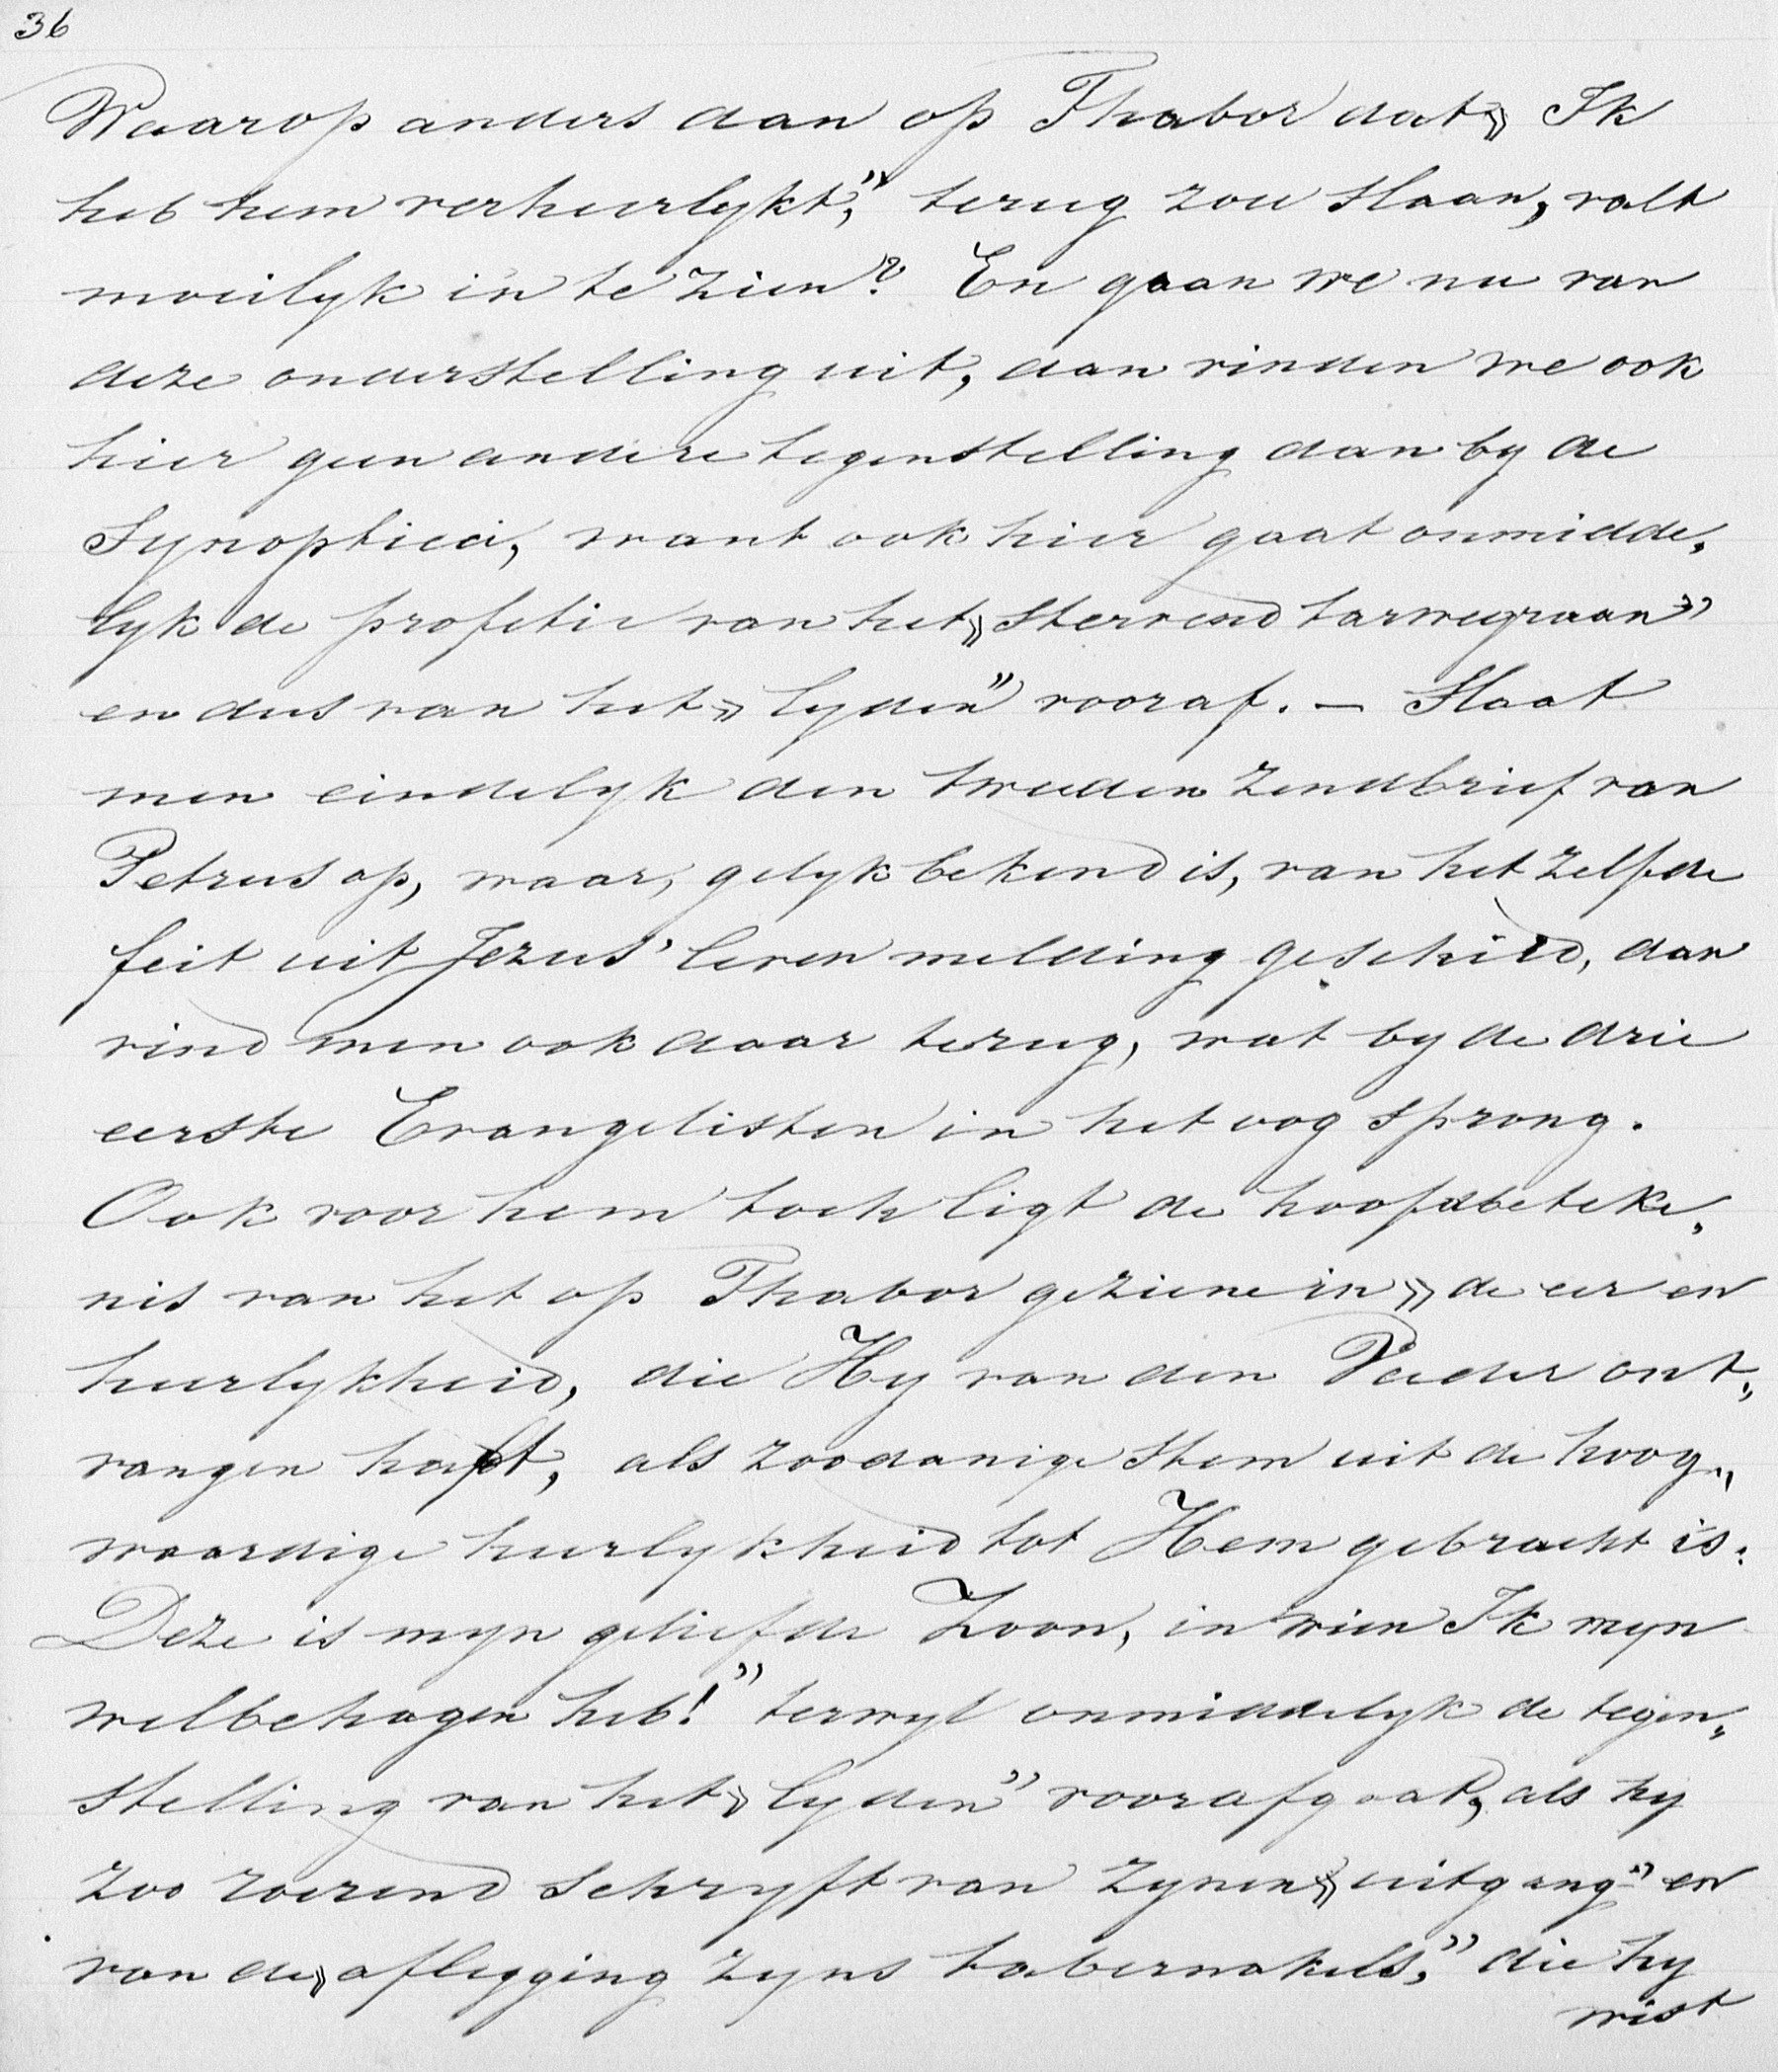 36
Waarop anders dan op Thabor dat „Ik
heb hem verheerlykt,” terug zou slaan, valt
moeilyk in te zien? En gaan we nu van
deze onderstelling uit, dan vinden we ook
hier geen andere tegenstelling dan by de
Synoptici, want ook hier gaat onmidde„
lyk de profetie van het „stervend tarwegraan”
en dus van het „lyden” vooraf. — Slaat
men eindelyk den tweeden Zendbrief van
Petrus op, waar, gelyk bekend is, van het zelfde
feit uit Jezus’ leven melding geschied, dan
vind men ook daar terug, wat by de drie
eerste Evangelisten in het oog sprong.
Ook voor hem toch ligt de hoofdbeteke„
nis van het op Thabor geziene in „de eer en
heerlykheid, die Hy van den Vader ont„
vangen heeft, als zoodanige stem uit de hoog„
waardige heerlykheid tot Hem gebracht is:
Deze is myn geliefde Zoon, in wien Ik myn
welbehagen heb!” terwyl onmiddelyk de tegen„
stelling van het „lyden” voorafgaat, als hy
zoo roerend schryft van zynen „uitgang” en
van de „aflegging zyns tabernakels,” die hy
wist